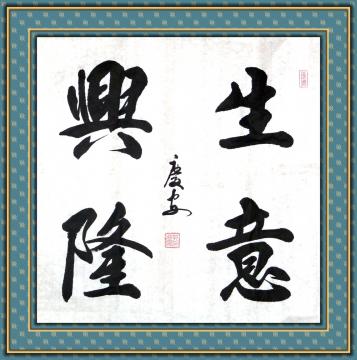 生意
興隆
慶安